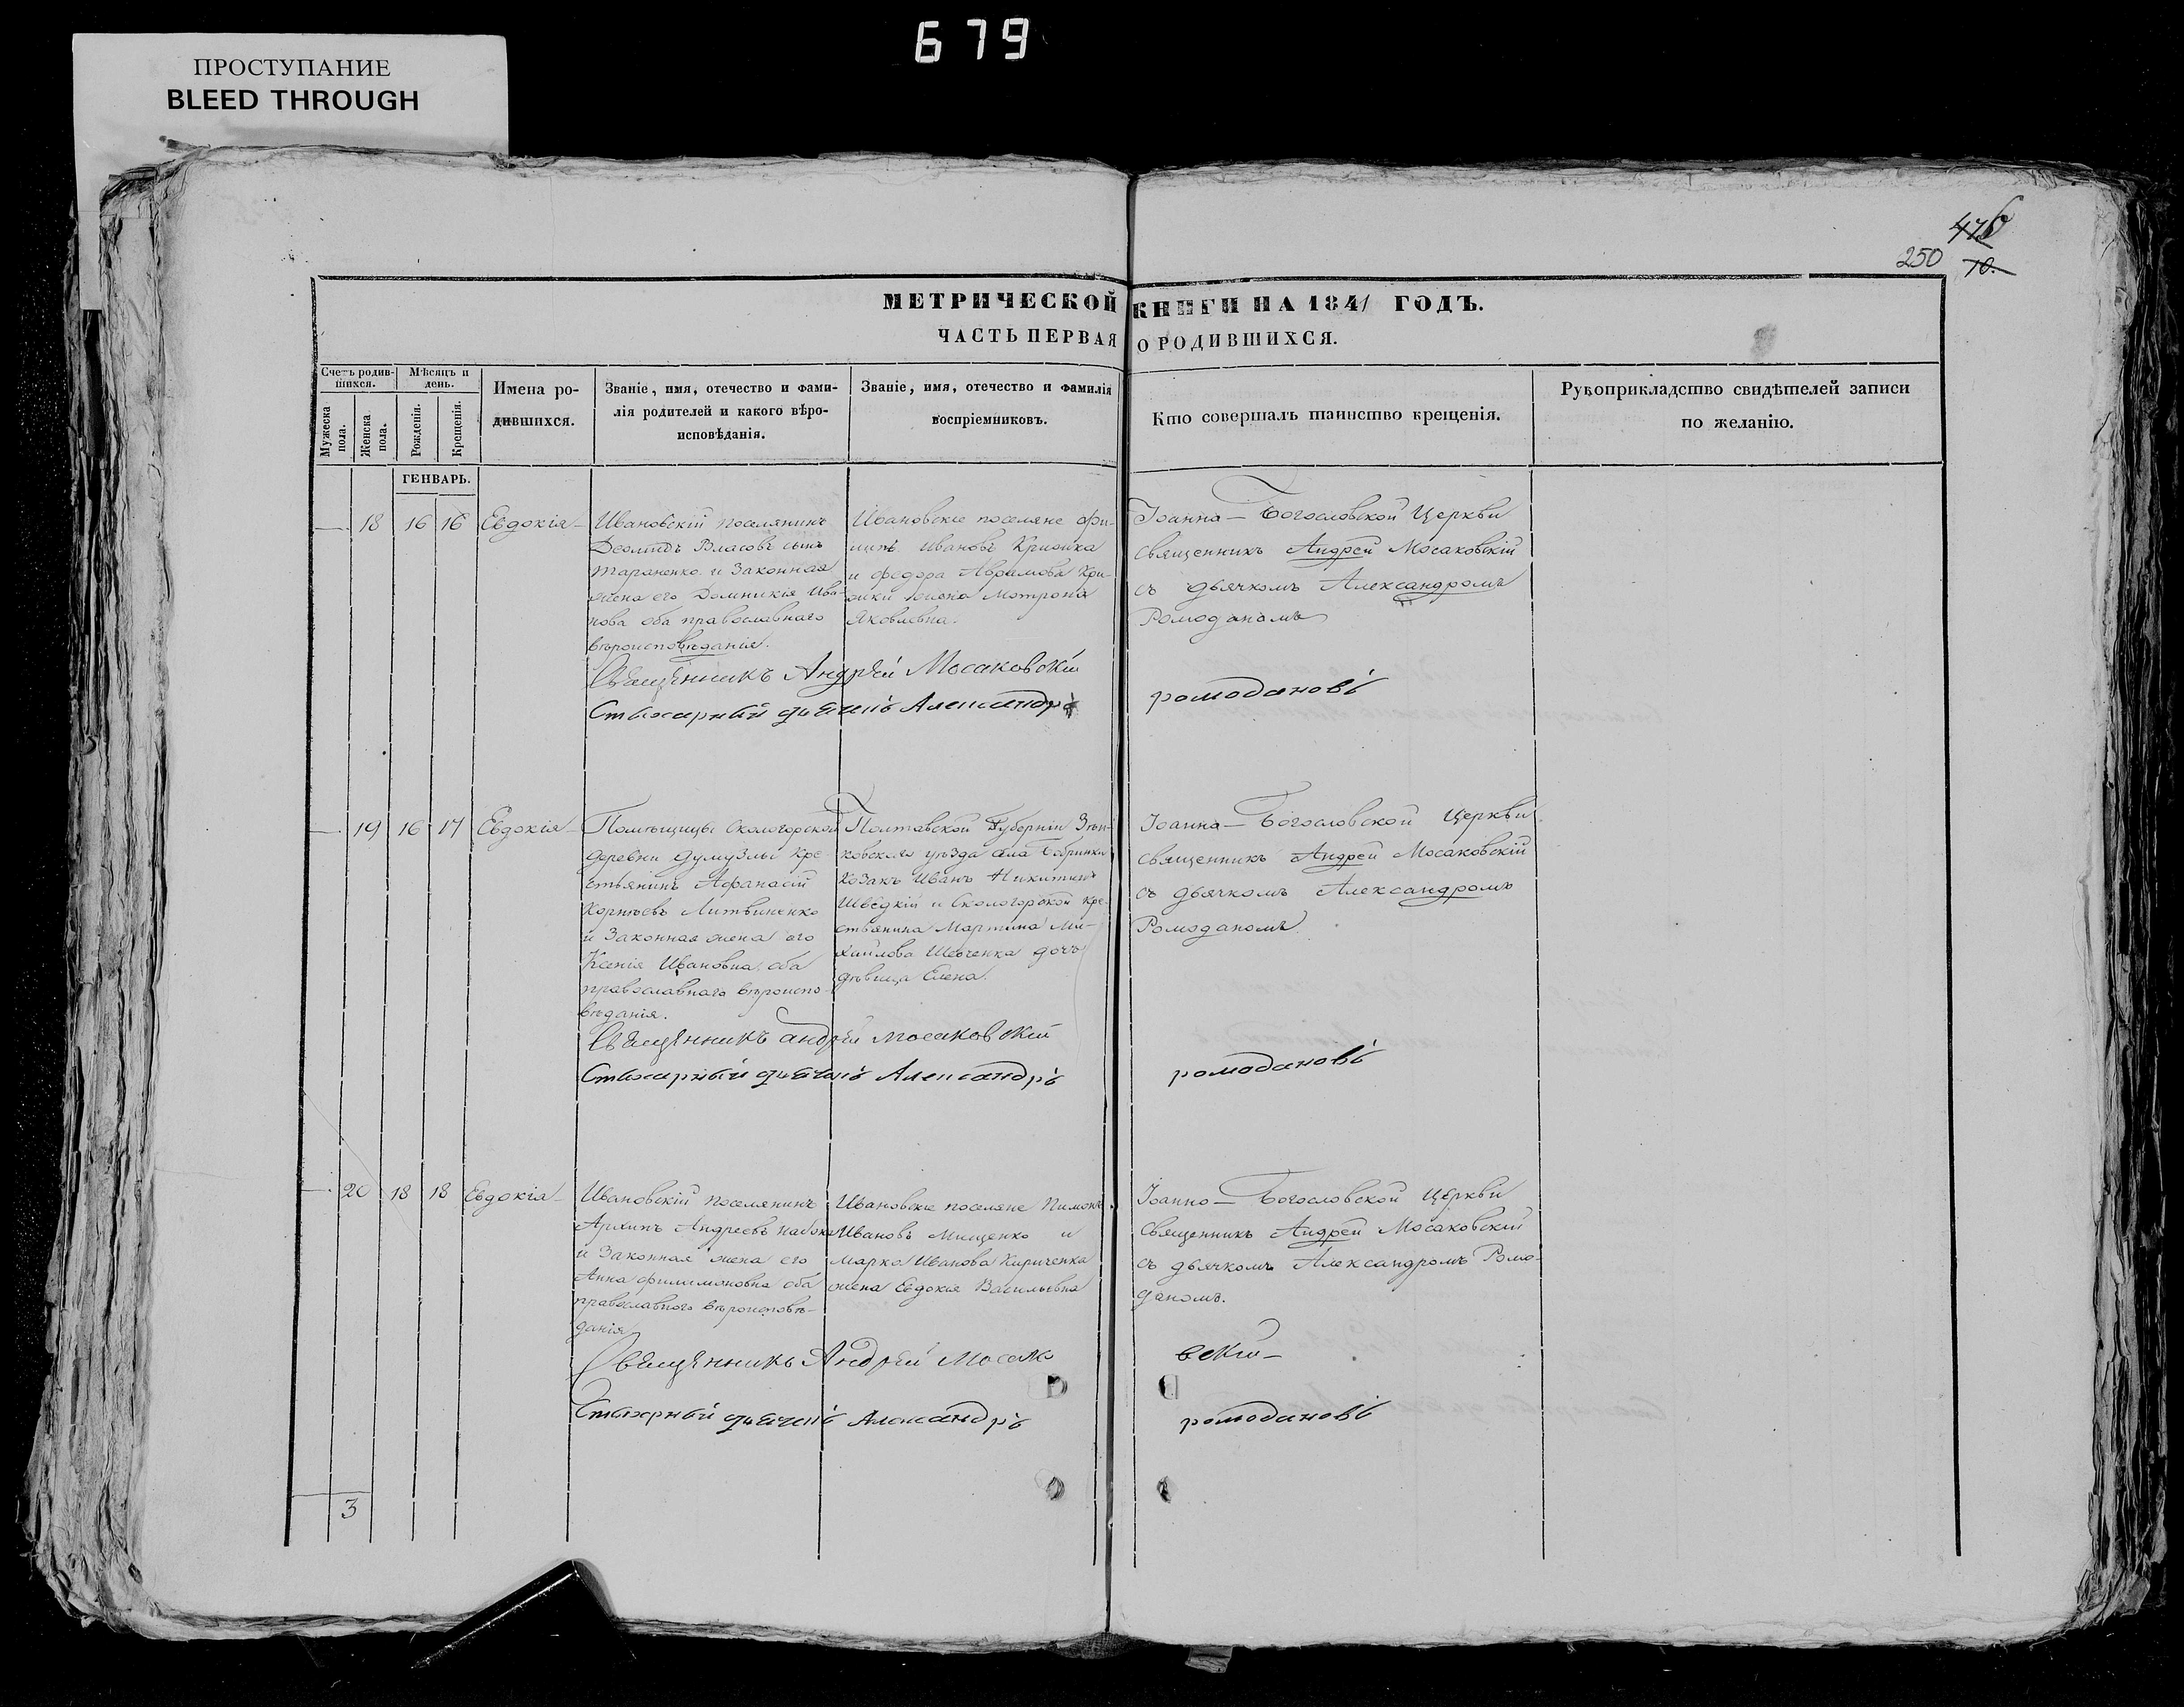 679
ПРОСТУПАНИЕ
BLEED THROUGH
476
250 70.
МЕТРИЧЕСКОЙ КНИГИ НА 1841 ГОДЪ.
ЧАСТЬ ПЕРВАЯ О РОДИВШИХСЯ.
Счетъ родившихся.
Мужеска пола.
Женска пола.
Мѣсяцъ и день.
Рожденія.
Крещенія.
Имена родившихся.
Званіе, имя, отечество и фамилія родителей и какого вѣроисповѣданія.
Званіе, имя, отечество и фамилія воспріемниковъ.
Кто совершалъ таинство крещенія.
Рукоприкладство свидѣтелей записи
по желанію.
ГЕНВАРЬ.
— 18 16 16 Евдокія
Ивановскій поселянинъ
Власовъ сынъ
Тараненко и законная
жена его Домникія Ива-
нова оба православнаго
вѣроисповѣданія.
Ивановскіе поселяне
Ивановъ
и Федора Аврамова
жена Мотрона
Яковлевна.
Іоанно-Богословской Церкви
священникъ Андрей Мосаковскій
съ дьячкомъ Александромъ
Ромоданомъ
Священникъ Андрей Мосаковскій
Стихарный дьячекъ Александръ ромодановъ
— 19 16 17 Евдокія
Помѣщицы Скологорской
деревни Кре-
стьянинъ Афанасій
Корнѣевъ Литвиненко
и законная жена его
Ксенія Ивановна оба
православнаго вѣроиспо-
вѣданія.
Полтавской Губерніи Зѣнь-
ковскаго уѣзда села
козакъ Иванъ Никитинъ
Шведкій и Скологорской кре-
стьянина Мартина Ми-
хайлова Шевченка дочь
дѣвица Елена.
Іоанно-Богословской Церкви
священникъ Андрей Мосаковскій
съ дьячкомъ Александромъ
Ромоданомъ
Священникъ андрей мосаковскій
Стихарный дьячекъ Александръ ромодановъ
— 20 18 18 Евдокія
Ивановскій поселянинъ
Архипъ Андреевъ Набока
и законная жена его
Анна Филимоновна оба
православнаго вѣроисповѣ-
данія
Ивановскіе поселяне Пимонъ
Ивановъ Мищенко и
Марка Иванова Кириченка
жена Евдокія Васильевна
Іоанно-Богословской Церкви
священникъ Андрей Мосаковскій
съ дьячкомъ Александромъ Ромо-
даномъ.
Священникъ Андрей Мосаковскій
Стихарный дьячекъ Александръ ромодановъ
3